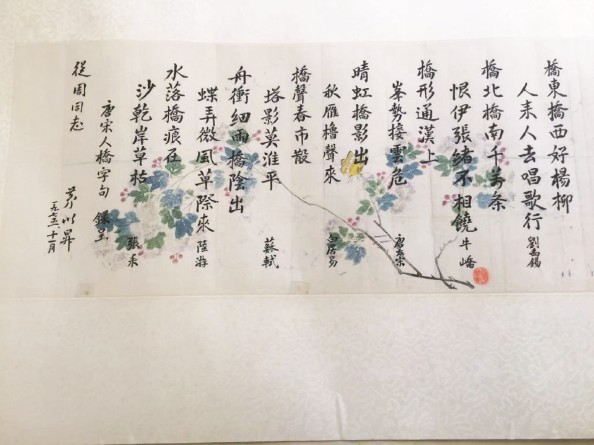 橋東橋西好楊柳
人来人去唱歌行 劉禹錫
橋北橋南千萬条
恨伊張緒不相饒 牛嶠
橋形通漢上
峯勢接雲危 唐太宗
晴虹橋影出
秋雁櫓聲來 白居易
橋聲春市散
塔影莫淮平 蘇軾
舟衝細雨橋陰出
蝶弄微風草際來 陸游
水落橋痕在
沙乾岸草枯 張耒
唐宋人橋字句 錄呈
從周同志
茅以昇
一九七三、十一月